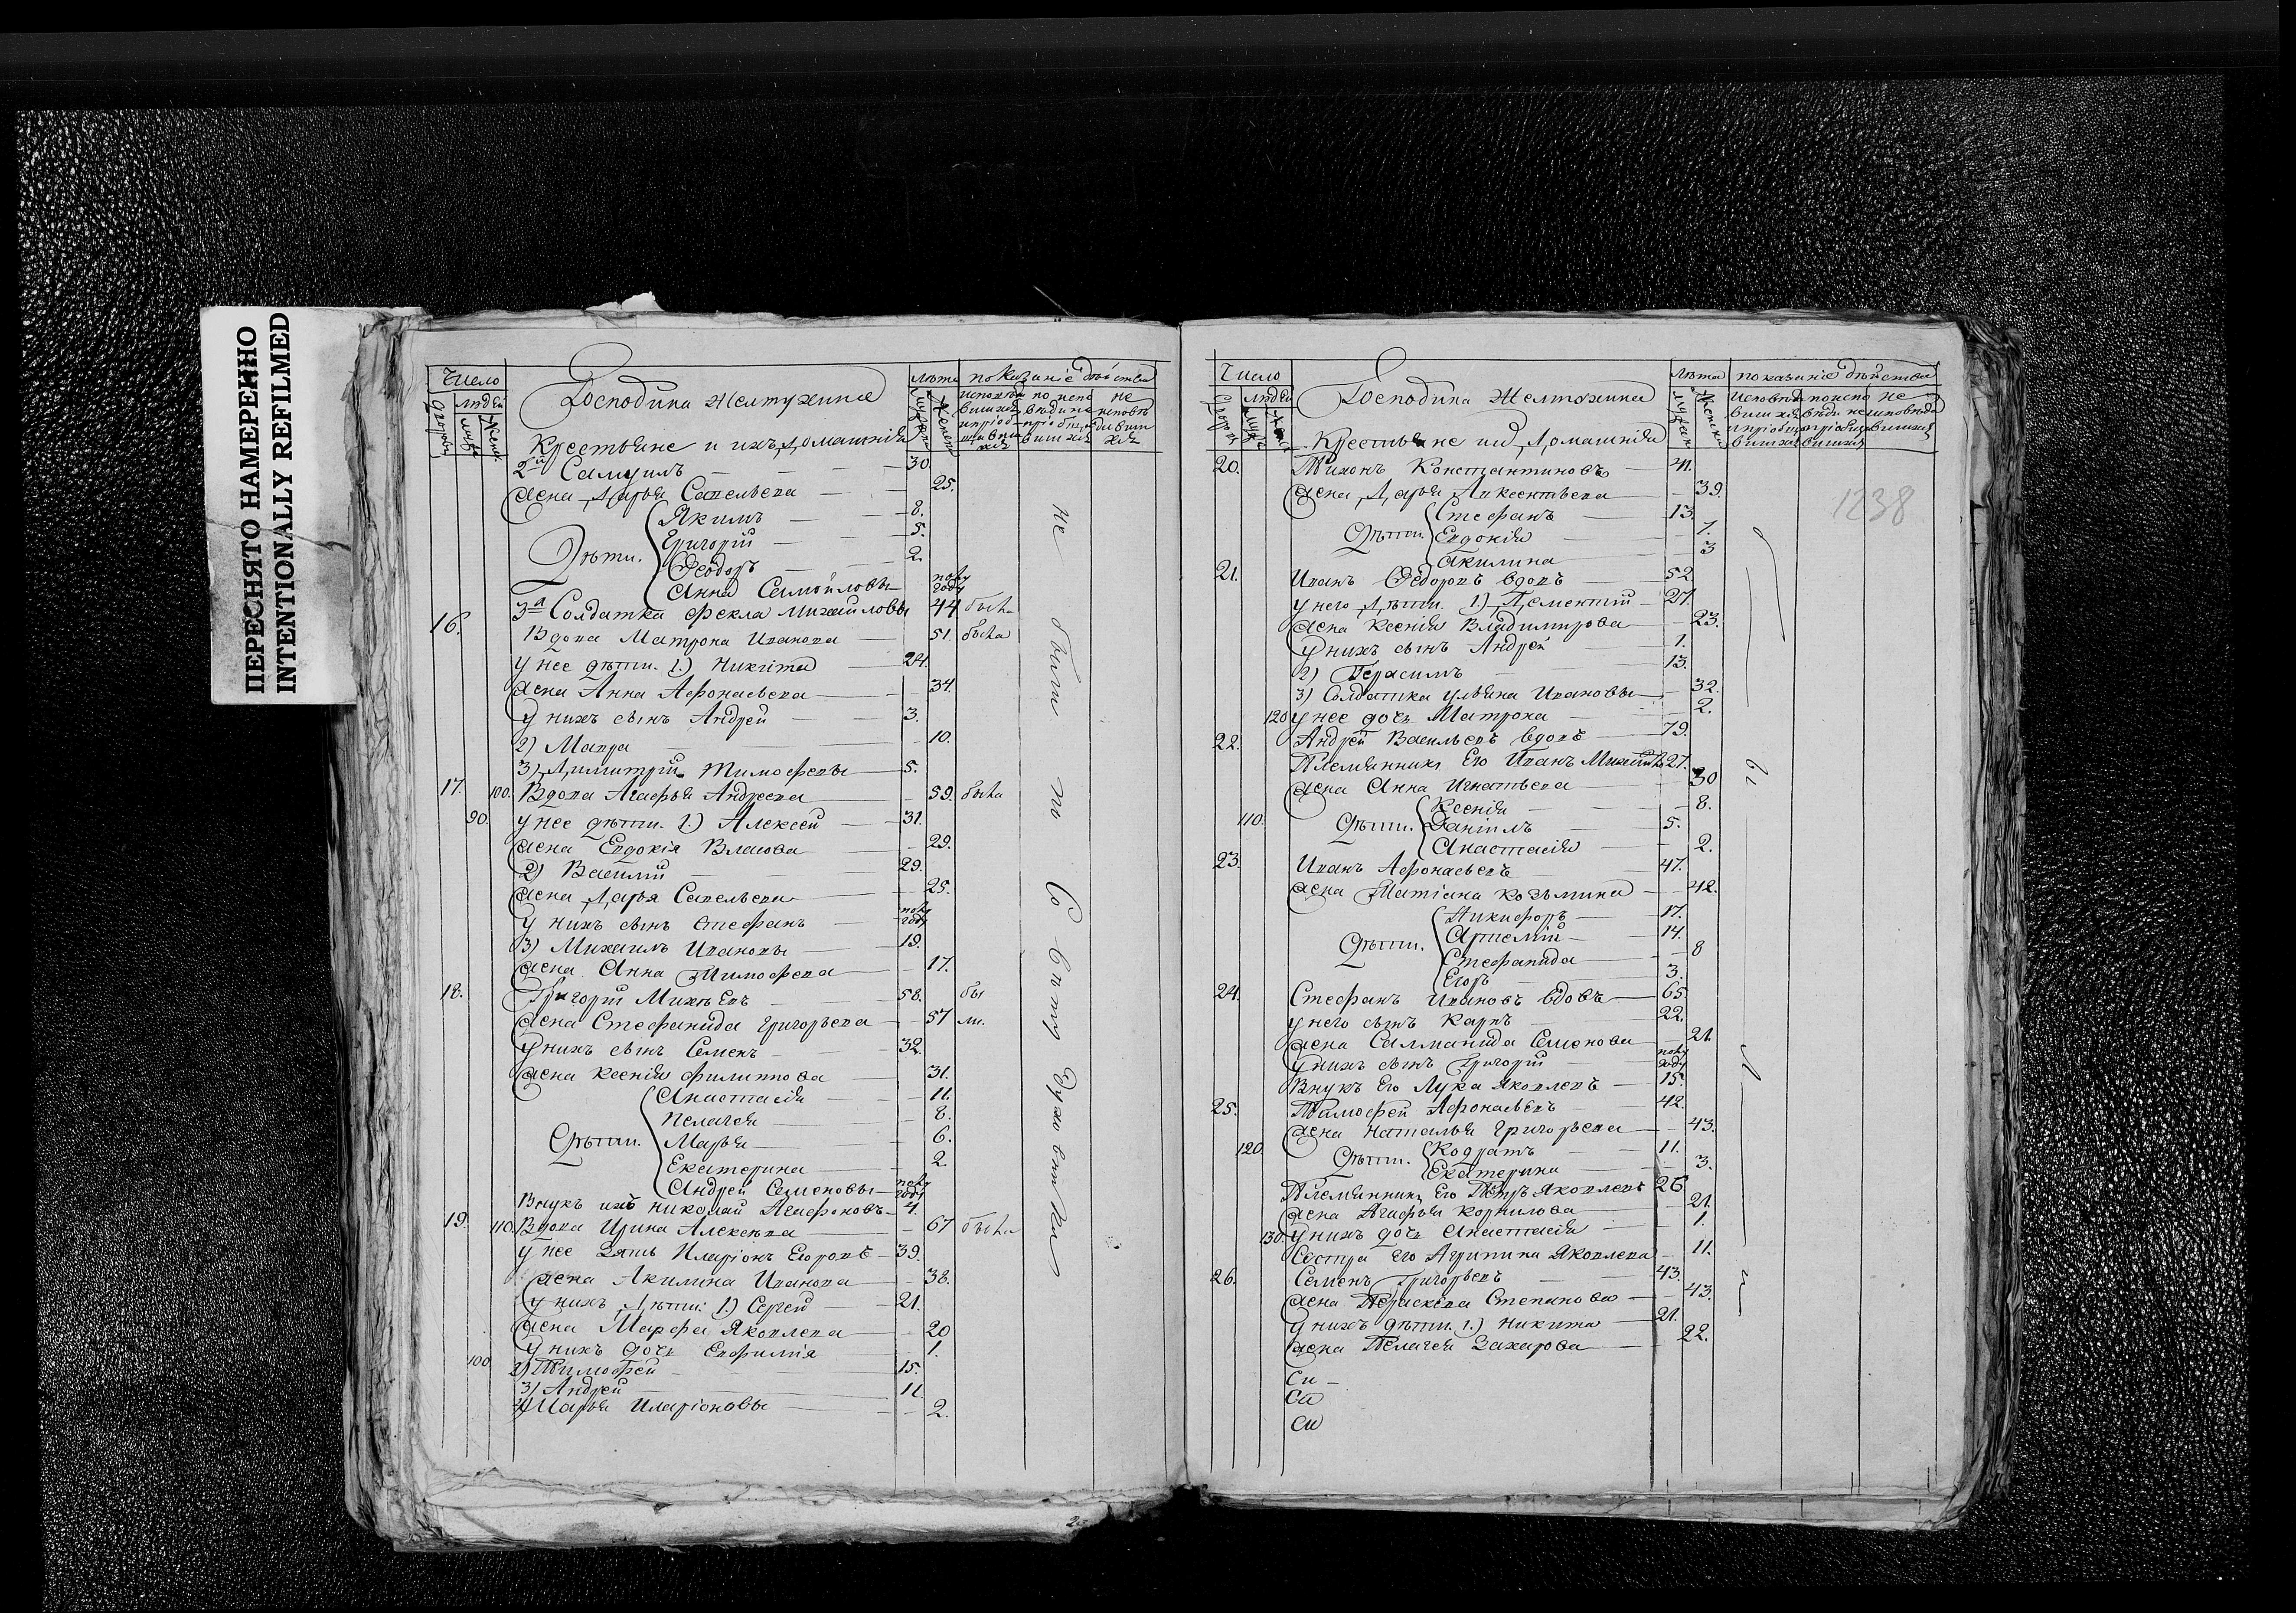 ПЕРЕСНЯТО НАМЕРЕННО
INTENTIONALLY REFILMED
Число
людей
лѣта
показаніе дѣйства
Господина Желтухина
Крестьяне и ихъ домашнія
2й Самуилъ 30.
жена Дарья Савельева 25.
Дѣти. Якимъ 8.
Григорій 5.
Феодоръ 2.
Анна Самойловы полугоду
3я Солдатка Фекла Михайловы 44 была
16. Вдова Матрона Иванова 51. была
у нее дѣти. 1.) Никита 24.
жена Анна Афонасьева 34.
у нихъ сынъ Андрей 3.
2) Мавра 10.
3) Димитрій Тимофевы 5.
17. 100. Вдова Агафья Андреева 59. была
90. у нее дѣти. 1.) Алексей 31.
жена Евдокія Власова 29.
2) Василій 29.
жена Дарья Савельева 25.
у нихъ сынъ Стефанъ полугоду
3) Михаилъ Ивановы 19.
жена Анна Тимофева 17.
18. Григорій Михѣевъ 58. бы
жена Стефанида Григорьева 57 ли.
у нихъ сынъ Семенъ 32.
жена Ксенія Филиппова 31.
Дѣти. Анастасія 11.
Пелагея 8.
Марья 6.
Екатерина 2.
Андрей Семеновы полугоду
Внукъ ихъ Николай Агафоновъ 4.
19. 110. Вдова Ирина Алексѣева 67 была
у нее зять Иларіонъ Егоровъ 39.
жена Акилина Иванова 38.
у нихъ дѣти: 1.) Сергей 21.
жена Марфа Яковлева 20
у нихъ дочь Евфимія 1.
100. 2) Тимофей 15.
3) Андрей 11.
4) Марья Иларіоновы 2.
не были по
Число
людей
лѣта
показаніе дѣйства
Господина Желтухина
Крестьяне их домашнія
1238
20. Тихонъ Константиновъ 41.
жена Дарья Авксентьева 39.
Дѣти. Стефанъ 13.
Евдокія 7.
Акилина 3
21. Иванъ Феодоровъ вдовъ 52
у него дѣти. 1.) Дементій 27.
жена Ксенія Владимирова 23.
у нихъ сынъ Андрей 1.
2) Герасимъ 13.
3) Солдатка Ульяна Ивановы 32.
120 у нее дочь Матрона 2.
22. Андрей Васильевъ вдовъ 79.
Племянникъ Его Иванъ 27.
жена Анна Игнатьева 30
Дѣти. Ксенія 8.
110. Даніилъ 5.
Анастасія 2.
23. Иванъ Афонасьевъ 47.
жена Татіана Козьмина 42.
Дѣти. Никифоръ 17.
Артемій 14.
Стефанида 8
Егоръ 3.
24. Стефанъ Ивановъ вдовъ 65
у него сынъ Карпъ 22.
жена Саламанида Семенова 21.
у нихъ сынъ Григорій полугоду
Внукъ Его Лука Яковлевъ 15.
25. Тимофей Афонасьевъ 42.
жена Наталья Григорьева 43.
120. Дѣти. Кодратъ 11.
Екатерина 3.
Племянникъ Его Петръ Яковлевъ 26
жена Агафья Корнилова 21.
130. у нихъ дочь Анастасія 1.
Сестра Его Агрипина Яковлева 11.
26. Семенъ Григорьевъ 43.
жена Параскева Степанова 43.
у нихъ дѣти. 1.) Никита 21.
жена Пелагея Захарова 22.
бы
л
и